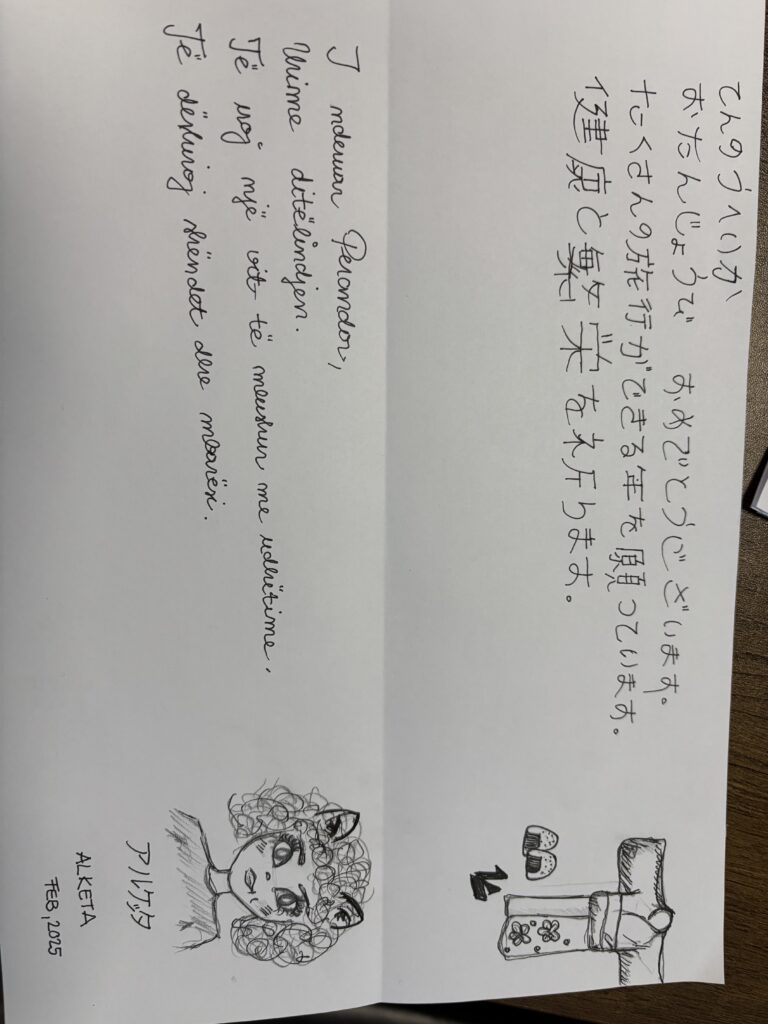 てんのうへいか
おたんじょうび おめでとうございます。
たくさんの旅行ができる年を願っています。
健康と繁栄を祈ります。
I nderuar Perandor,
Urime ditëlindjen.
Të uroj një vit të mbushur me udhëtime.
Të dëshiroj shëndet dhe mbarësi.
アルケッタ
ALKETA
FEB, 2025